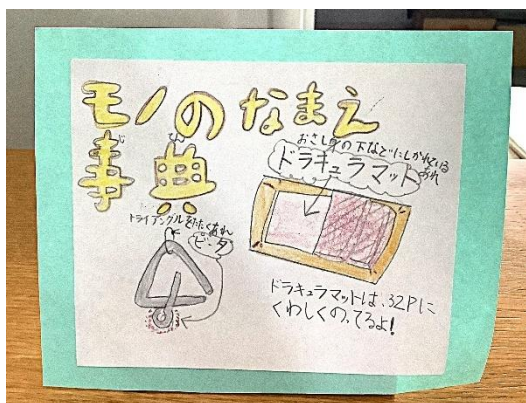 モノのなまえ
事典
じてん
おさし身の下などにしかれているあれ
ドラキュラマット
トライアングルをたたくあれ
ビータ
ドラキュラマットは、32Pに
くわしくのってるよ!